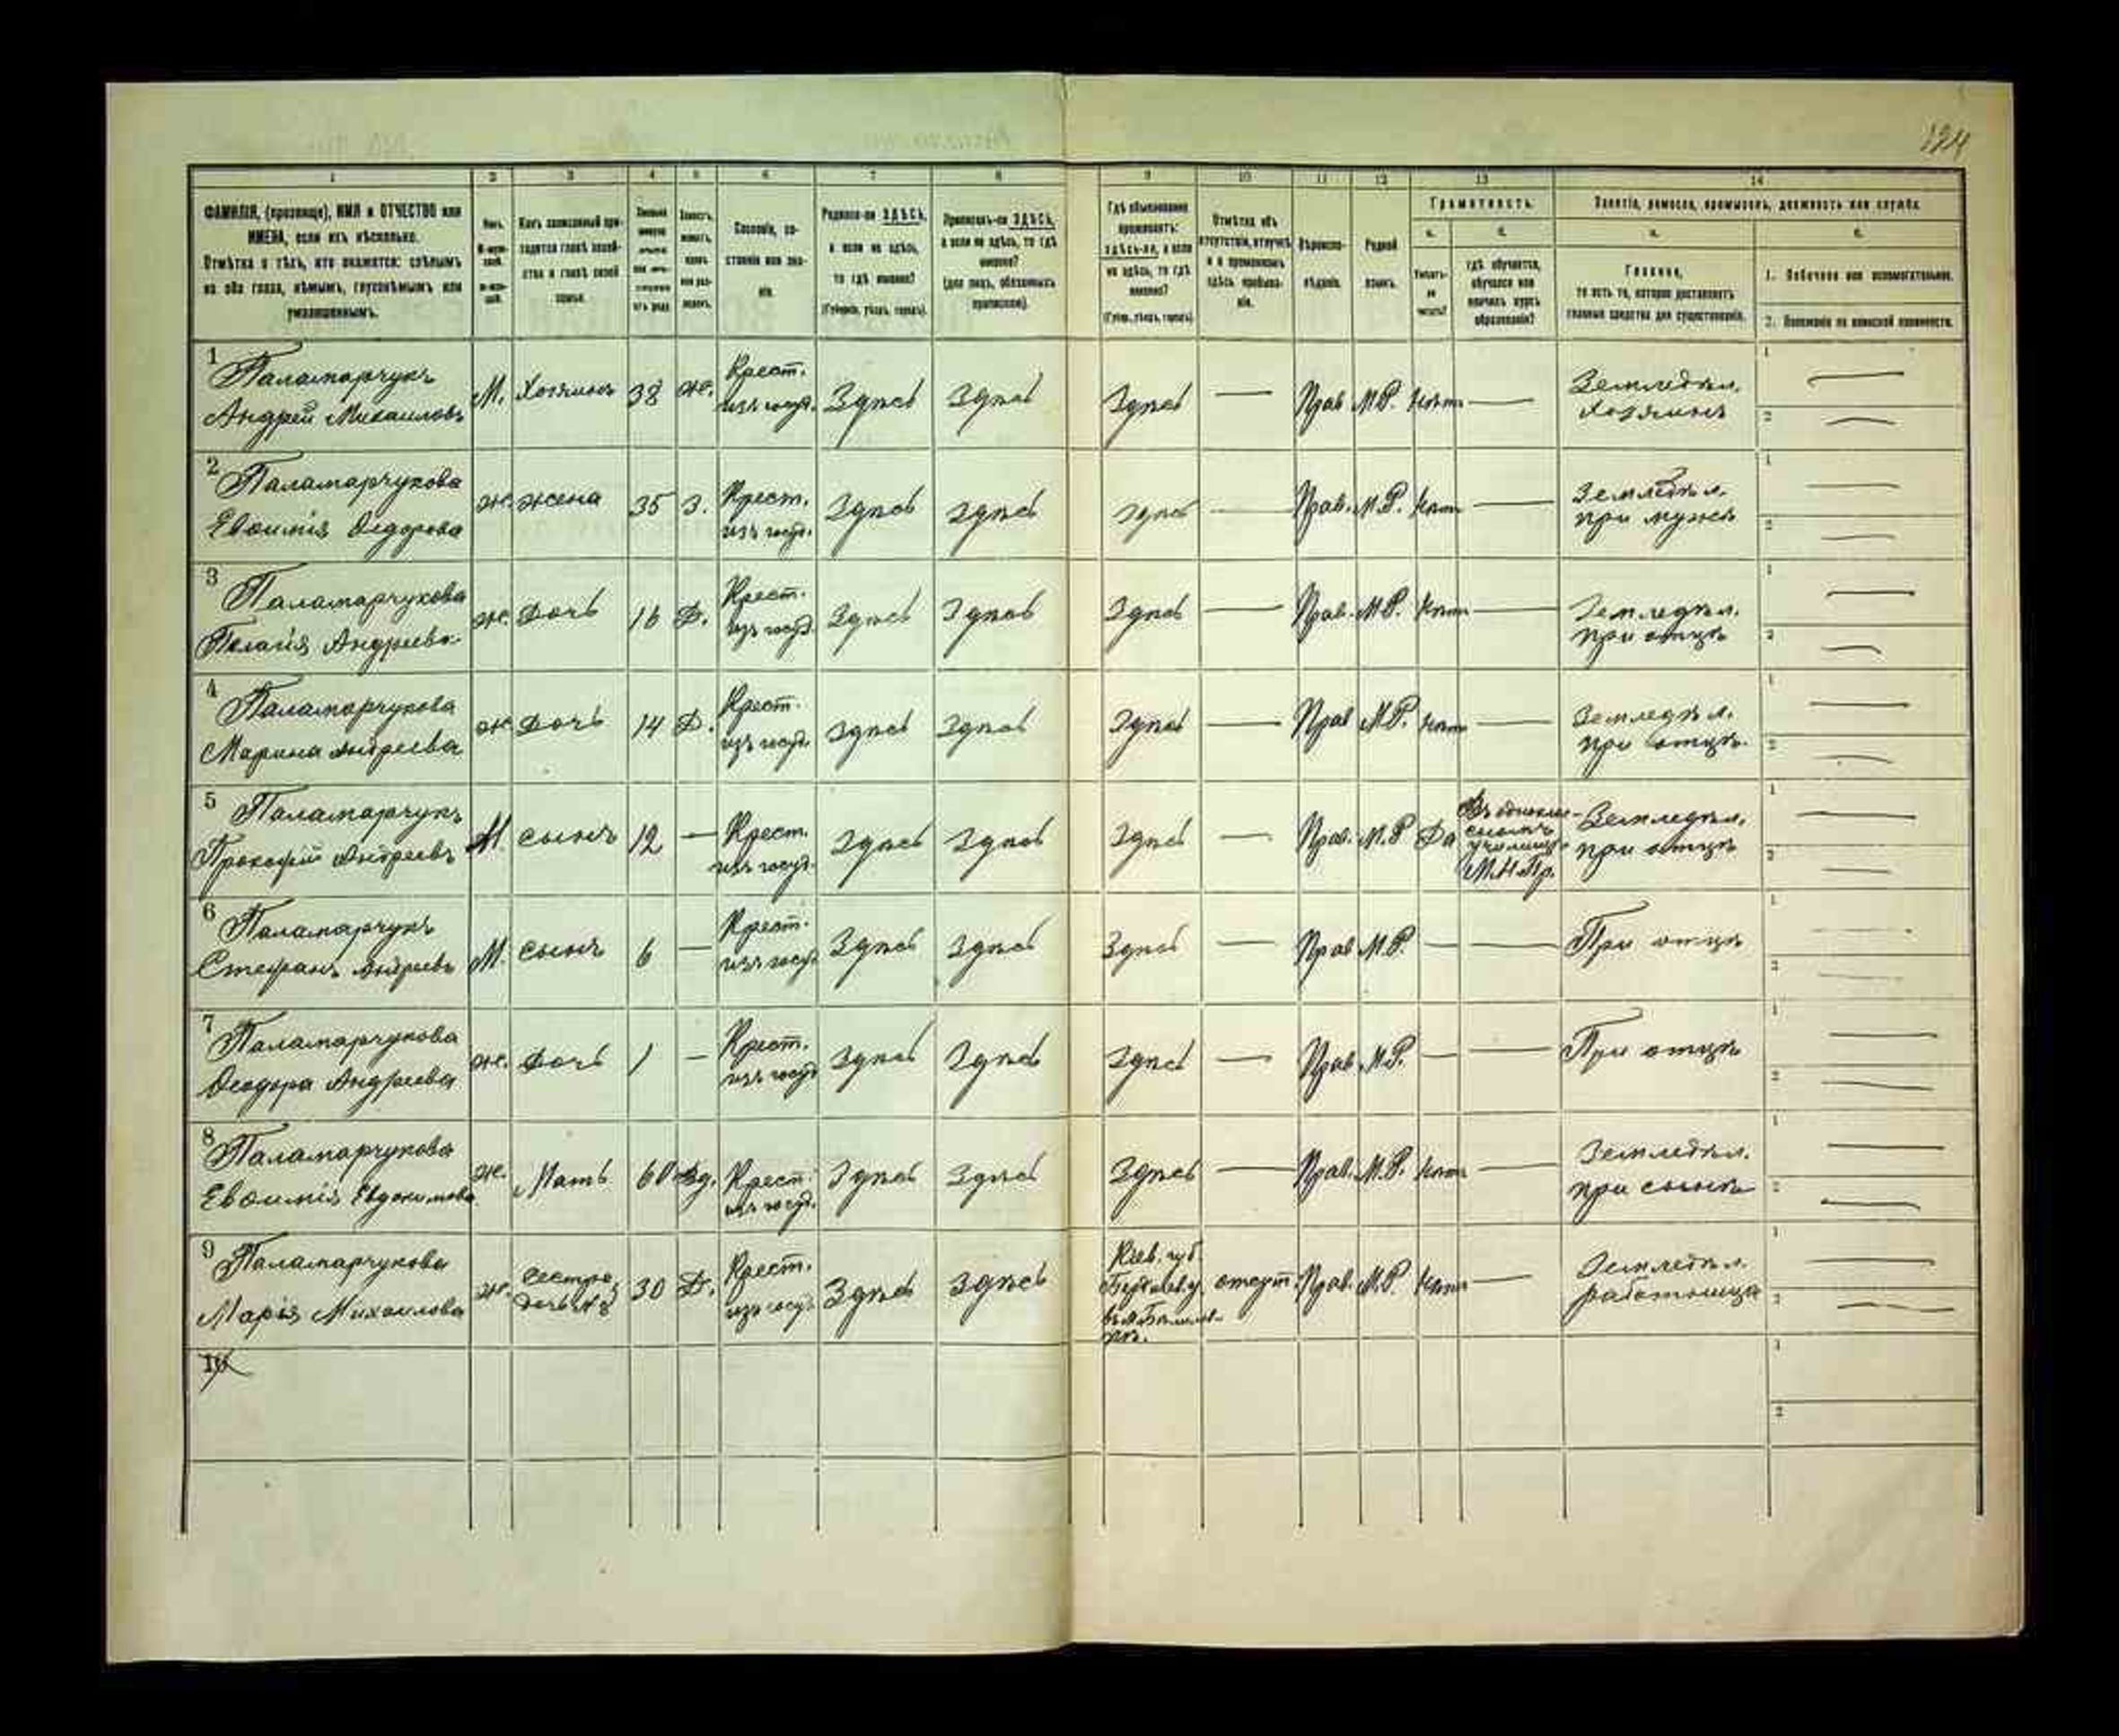 124
1 2 3 4 5 6 7 8 9 10 11 12 13 14
ФАМИЛІЯ, (прозвище), ИМЯ и ОТЧЕСТВО или
ИМЕНА, если ихъ нѣсколько.
Отмѣтка о тѣхъ, кто окажется: слѣпымъ
на оба глаза, нѣмымъ, глухонѣмымъ или
умалишеннымъ.
Какъ записанный при-
ходится главѣ хозяй-
ства и главѣ своей
семьи.
Сословіе, со-
стояніе или зва-
ніе.
Родился-ли ЗДѢСЬ,
а если не здѣсь,
то гдѣ именно?
(Губернія, уѣздъ, городъ).
Приписанъ-ли ЗДѢСЬ,
а если не здѣсь, то гдѣ
именно?
(для лицъ, обязанныхъ
припиской).
Гдѣ обыкновенно
проживаетъ:
здѣсь-ли, а если
не здѣсь, то гдѣ
именно?
(Губер., уѣздъ, городъ).
Отмѣтка объ
отсутствіи, отлучкѣ
и о временномъ
здѣсь пребыва-
ніи.
Вѣроиспо-
вѣданіе.
Родной
языкъ.
Грамотность.
а. б.
Умѣетъ-
ли
читать?
гдѣ обучается,
обучался или
кончилъ курсъ
образованія?
Занятіе, ремесло, промыселъ, должность или служба.
а. б.
Главное,
то есть то, которое доставляетъ
главныя средства для существованія.
1. Побочное или вспомогательное.
2. Положеніе по воинской повинности.
1 Паламарчукъ
Андрей Михаиловъ
М. Хозяинъ 38 ж. Крест.
изъ госуд. Здѣсь Здѣсь Здѣсь — Прав М.Р. Нѣтъ — Земледѣл.
хозяинъ 1 —
2 —
2 Паламарчукова
Евѳимія Ѳедорова
ж. жена 35 З. Крест.
изъ госуд. Здѣсь Здѣсь Здѣсь — Прав. М.Р. Нѣтъ — Земледѣл.
при мужѣ 1 —
2 —
3 Паламарчукова
Пелагія Андреева
ж. Дочь 16 Д. Крест.
изъ госуд. Здѣсь Здѣсь Здѣсь — Прав. М.Р. Нѣтъ — Земледѣл.
при отцѣ 1 —
2 —
4 Паламарчукова
Марина Андреева
ж Дочь 14 Д. Крест.
изъ госуд. Здѣсь Здѣсь Здѣсь — Прав М.Р. Нѣтъ — Земледѣл.
при отцѣ. 1 —
2 —
5 Паламарчукъ
Прокофій Андреевъ
М. сынъ 12 — Крест.
изъ госуд. Здѣсь Здѣсь Здѣсь — Прав. М.Р Да Въ одноклас-
сномъ
училищѣ
М.Н.Пр. Земледѣл.
при отцѣ 1 —
2 —
6 Паламарчукъ
Стефанъ Андреевъ
М. сынъ 6 — Крест.
изъ госуд Здѣсь Здѣсь Здѣсь — Прав М.Р. — — При отцѣ 1 —
2 —
7 Паламарчукова
Ѳеодора Андреева
ж. Дочь 1 — Крест.
изъ госуд Здѣсь Здѣсь Здѣсь — Прав М.Р. — — При отцѣ 1 —
2 —
8 Паламарчукова
Евѳимія Евдокимова
ж. Мать 60 Вд. Крест.
изъ госуд. Здѣсь Здѣсь Здѣсь — Прав. М.Р. Нѣтъ — Земледѣл.
при сынѣ 1 —
2 —
9 Паламарчукова
Марія Михаилова
ж. Сестра,
дочь №8 30 Д. Крест.
изъ госуд. Здѣсь Здѣсь Кіев. губ.
отсут. Прав. М.Р. Нѣтъ — Земледѣл.
работница 1 —
2 —
10
1
2